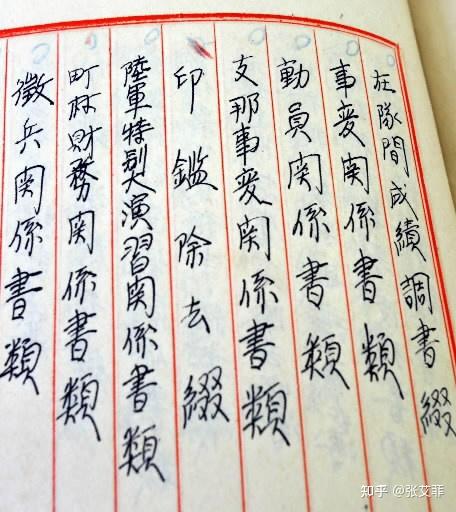 在隊間成績調書綴
事変関係書類
動員関係書類
支那事変関係書類
印鑑除去綴
陸軍特別大演習関係書類
町村財務関係書類
徴兵関係書類
知乎 @张艾菲